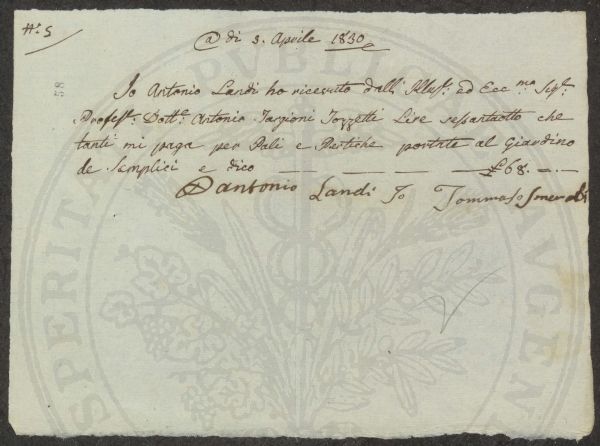 N.° 5
58
@ di 3. Aprile 1830
Io Antonio Landi ho ricevuto dall' Illus.e ed Ecc.mo Sig.e
Profess.e Dott.e Antonio Targioni Tozzetti Lire sessantotto che
tanti mi paga per Pali e Pertiche portate al Giardino
de Semplici e dico — — — — £ 68. — . —
antonio Landi Io Tommaso Smeraldi
PVBLICAE
AVGEN
SPERITA